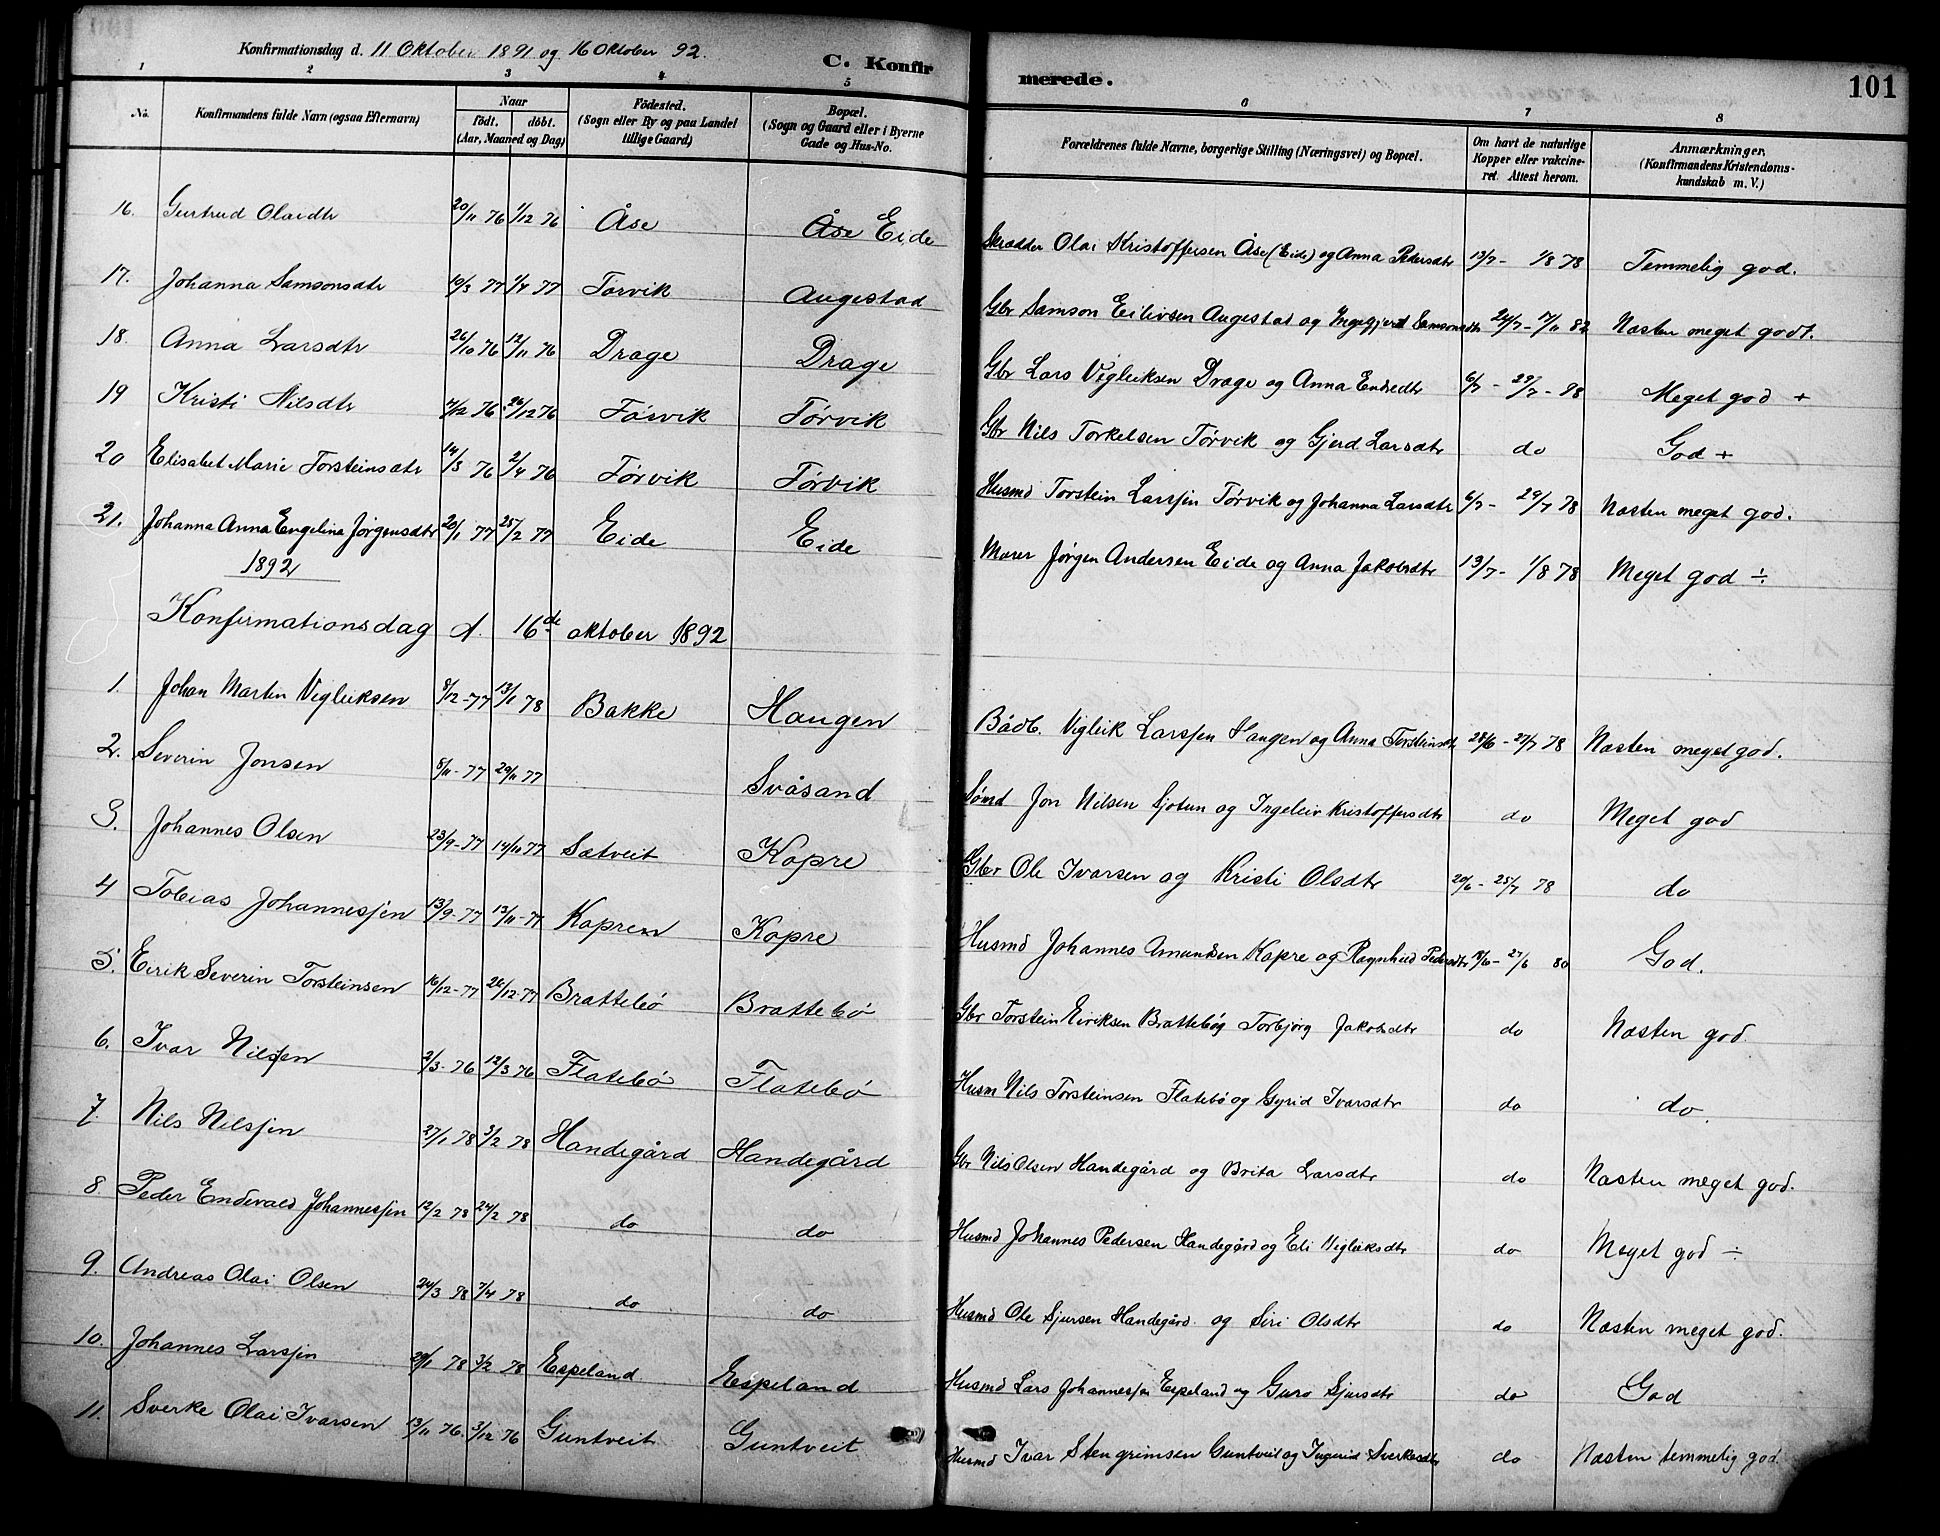 Konfirmationsdag d. 11 Oktober 1891 og 16 Oktober 92.
C. Konfirmerede.
101
1 2 3 4 5 6 7 8
No. | Konfirmandens fulde Navn (ogsaa Efternavn) | Naar födt. döbt. (Aar, Maaned og Dag) | Födested. (Sogn eller By og paa Landet tillige Gaard) | Bopæl. (Sogn og Gaard eller i Byerne Gade og Hus-No. | Forældrenes fulde Navne, borgerlige Stilling (Næringsvei) og Bopæl. | Om havt de naturlige Kopper eller vakcineret. Attest herom. | Anmærkninger. (Konfirmandens Kristendomskundskab m. V.)
16. Gurtrud Olaidtr 20/11 76 1/12 76 Åse Åse Eide Skrædder Olai Kristoffersen Åse (Eide) og Anna Pedersdtr 13/7 - 1/8 78 Temmelig god.
17. Johanna Samsonsdtr 10/3 77 1/4 77 Torvik Augestad Gbr Samson Eilivsen Augestad og Ingegjerd Samsonsdtr 24/7 - 7/11 82 Næsten meget godt.
18. Anna Larsdtr 26/10 76 12/11 76 Drage Drage Gbr Lars Vigleiksen Drage og Anna Endredtr 6/7 - 29/7 - 88 Meget god +
19 Kristi Nilsdtr 4/12 76 26/12 76 Tørvik Tørvik Gbr Nils Torkelsen Tørvik og Gjerd Larsdtr do God +
20 Elisabet Marie Torsteinsdtr 14/3 76 2/4 76 Tørvik Tørvik Husmd Torstein Larssen Tørvik og Johanna Larsdtr 6/7 - 29/7 78 Næsten meget god.
21. Johanna Anna Engelina Jørgensdtr 20/1 77 25/2 77 Eide Eide Murer Jørgen Andersen Eide og Anna Jakobsdtr 13/7 - 1/8 78 Meget god ÷
1892
Konfirmationsdag d. 16de oktober 1892
1. Johan Martin Vigleiksen 8/12 - 77 13/1 78 Bakke Haugen Bådb. Vigleik Larssen Haugen og Anna Torsteinsdtr 28/6 - 27/7 78 Næsten meget god.
2. Severin Jonsen 8/11 - 77 29/11 77 Svåsand Sømd Jon Nilsen Sjotun og Ingeleiv Kristoffersdtr do Meget god
3. Johannes Olsen 23/9 - 77 14/11 77 Sætveit Kopre Gbr Ole Ivarsen og Kristi Olsdtr 20/6 - 25/7 78 do
4 Tobias Johannessen 13/9 - 77 13/11 - 77 Kopren Kopre Husmd Johannes Amundsen Kopre og Ragnheid Pedersdtr 8/6 - 27/6 80 God.
5. Eirik Severin Torsteinsen 16/12 - 77 26/12 - 77 Brattebø Brattebø Gbr Torstein Eiriksen Brattebøg Torbjørg Jakobsdtr do Næsten god.
6. Ivar Nilssen 2/3 - 76 12/3 76 Flatebø Flatebø Husm Nils Torsteinsen Flatebø og Gyrid Ivarsdtr do do.
7. Nils Nilssen 27/1 78 3/2 78 Handegård Handegård Gbr Nils Olsen Handegård og Brita Larsdtr do Næsten meget god.
8. Peder Endevald Johannessen 12/2 78 24/2 78 do do Husmd Johannes Pedersen Handegård og Eli Vigleiksdtr do Meget god ÷
9. Andreas Olai Olsen 24/3 78 7/4 78 do do Husmd Ole Sjursen Handegård og Siri Olsdtr do Næsten meget god.
10. Johannes Larssen 20/1 78 3/2 78 Espeland Espeland Husmd Lars Johannessen Espeland og Guro Sjursdtr do God
11. Sverke Olai Ivarsen 13/11 76. 3/12 76 Guntveit Guntveit Husmd Ivar Stengrimsen Guntveit og Ingerid Sverkesdtr do Næsten temmelig god.